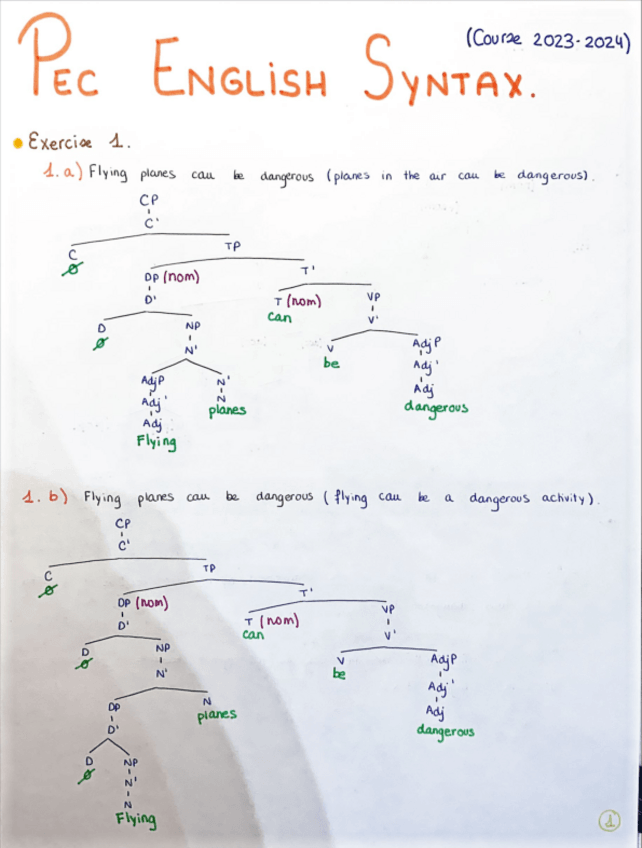 (Course 2023-2024)
PEC ENGLISH SYNTAX.
Exercise 1.
1.a) Flying planes can be dangerous (planes in the air can be dangerous).
CP
C'
C TP
Ø
DP (nom) T'
D' T (nom) VP
can
D NP V'
Ø
N' V AdjP
be
AdjP N' Adj'
Adj' N Adj
planes dangerous
Adj
Flying
1.b) Flying planes can be dangerous (flying can be a dangerous activity).
CP
C'
C TP
Ø
DP (nom) T'
D' T (nom) VP
can
D NP V'
Ø
N' V AdjP
be
DP N Adj'
planes
D' Adj
dangerous
D NP
Ø
N'
N
Flying
1